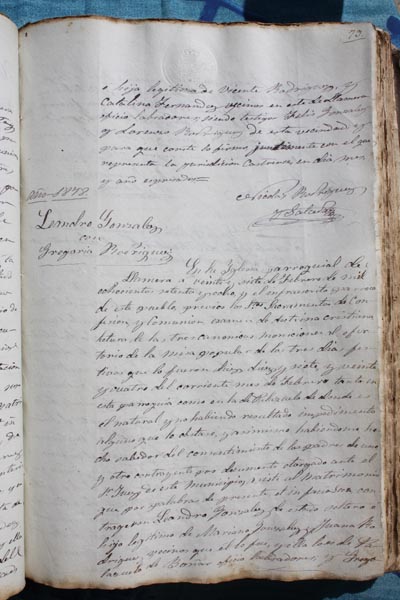 73
e hija legitima de Vicente Rodriguez y
Catalina Fernandez vecinos en este de Llamera
oficio labradores, siendo testigos Felix Gonzalez
y Lorenzo Rodriguez de esta vecindad y
para que conste lo firmo juntamente con el que
representa la juridicion Castrense en dia, mes
y año espresados
Nicolas Rodriguez
Año-1878
Leandro Gonzalez
con
Gregoria Rodriguez
En la Yglesia parroquial de
Llamera a veinte y siete de Febrero de mil
ochocientos setenta y ocho, y el infrascrito parroco
de este pueblo, previos los Stos Sacramentos de Con
fesion, y Comunion, examen de doctrina cristiana
hechas las tres canonicas moniciones al ofer
torio de la misa popular de los tres dias fes
tivos que lo fueron diez, diez y siete, y veinte
y cuatro del corriente mes de Febrero tanto en
esta parroquia como en la de de donde es
el natural y no habiendo resultado impedimento
alguno que lo obstase, y asimismo habiendome he
cho sabedor del consentimiento de los padres de uno
y otro contrayente por documento otorgado ante el
Sr Juez de este municipio, asisti al Matrimonio
que por palabras de presente el in facie con
trageron Leandro Gonzalez, de estado soltero e
hijo legitimo de Mariano Gonzalez y Juana
vecinos que el lo fue, y ella lo es de
de Boñar oficio labradores; y Grego